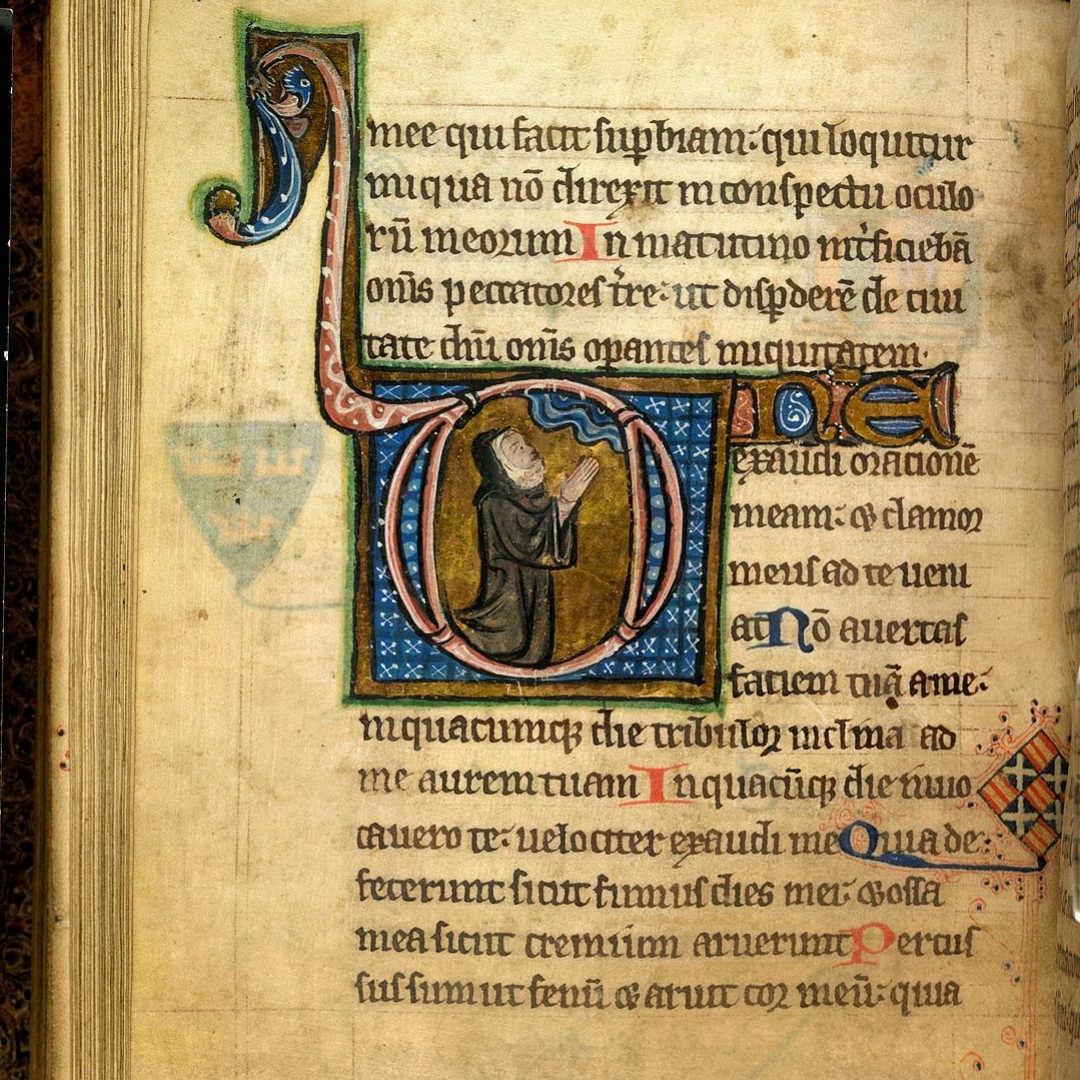 mee qui facit supbiam: qui loquitur
iniqua nō direxit in conspectu oculo
rū meorum In matutino int̾ficiebā
om̄s peccatores tr̄e: ut disꝑderē de ciui
tate dn̄i om̄s oꝑantes iniquitatem.
Dne
exaudi orationē
meam: ⁊ clamor
meus ad te ueni
at Nō auertas
faciem tuā a me:
inquacumqꝫ die tribulor inclina ad
me aurem tuam In quacūqꝫ die inuo
cauero te: uelociter exaudi me Quia de:
fecerunt sicut fumus dies mei: ⁊ ossa
mea sicut cremium aruerunt Percus
sus sum ut fenū ⁊ aruit cor meū: quia